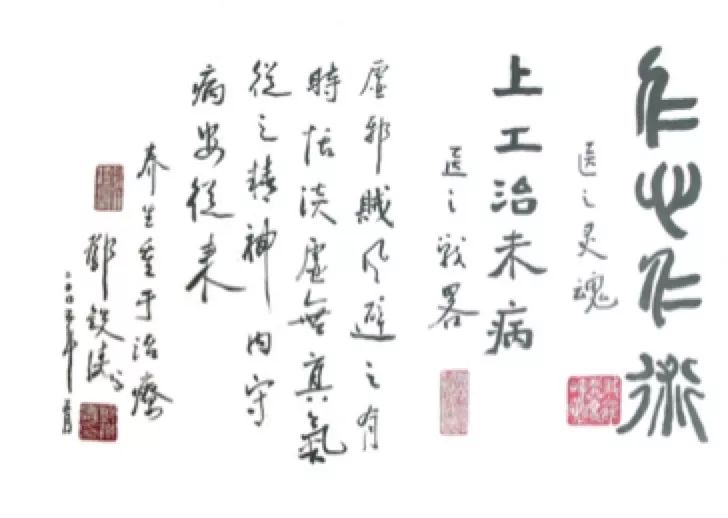 仁心仁術
医之灵魂
上工治未病
医之战略
虚邪賊风避之有
時恬淡虚無真氣
從之精神内守
病安從来
养生重于治療
鄧铁涛